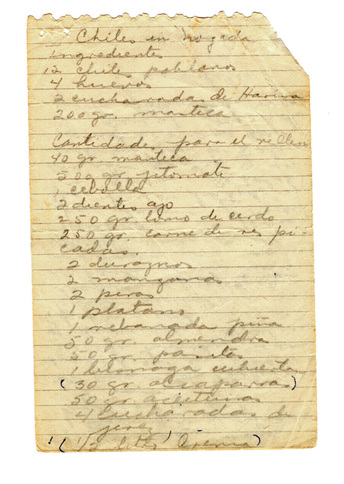 Chiles en nogada
Ingredientes
12 chiles poblanos
4 huevos
2 cucharadas de Harina
200 gr. manteca
Cantidades para el relleno
40 gr. manteca
500 gr. jitomate
1 cebolla
2 dientes ajo
250 gr. lomo de cerdo
250 gr. carne de res pi-
cadas.
2 duraznos
2 manzanas
2 peras
1 platano
1 rebanada piña
50 gr. almendra
50 gr. pasitas
1 biznaga cubierta
(30 gr. alcaparras)
50 gr. aceitunas
4 cucharadas de
jerez
(1/2 litro crema)